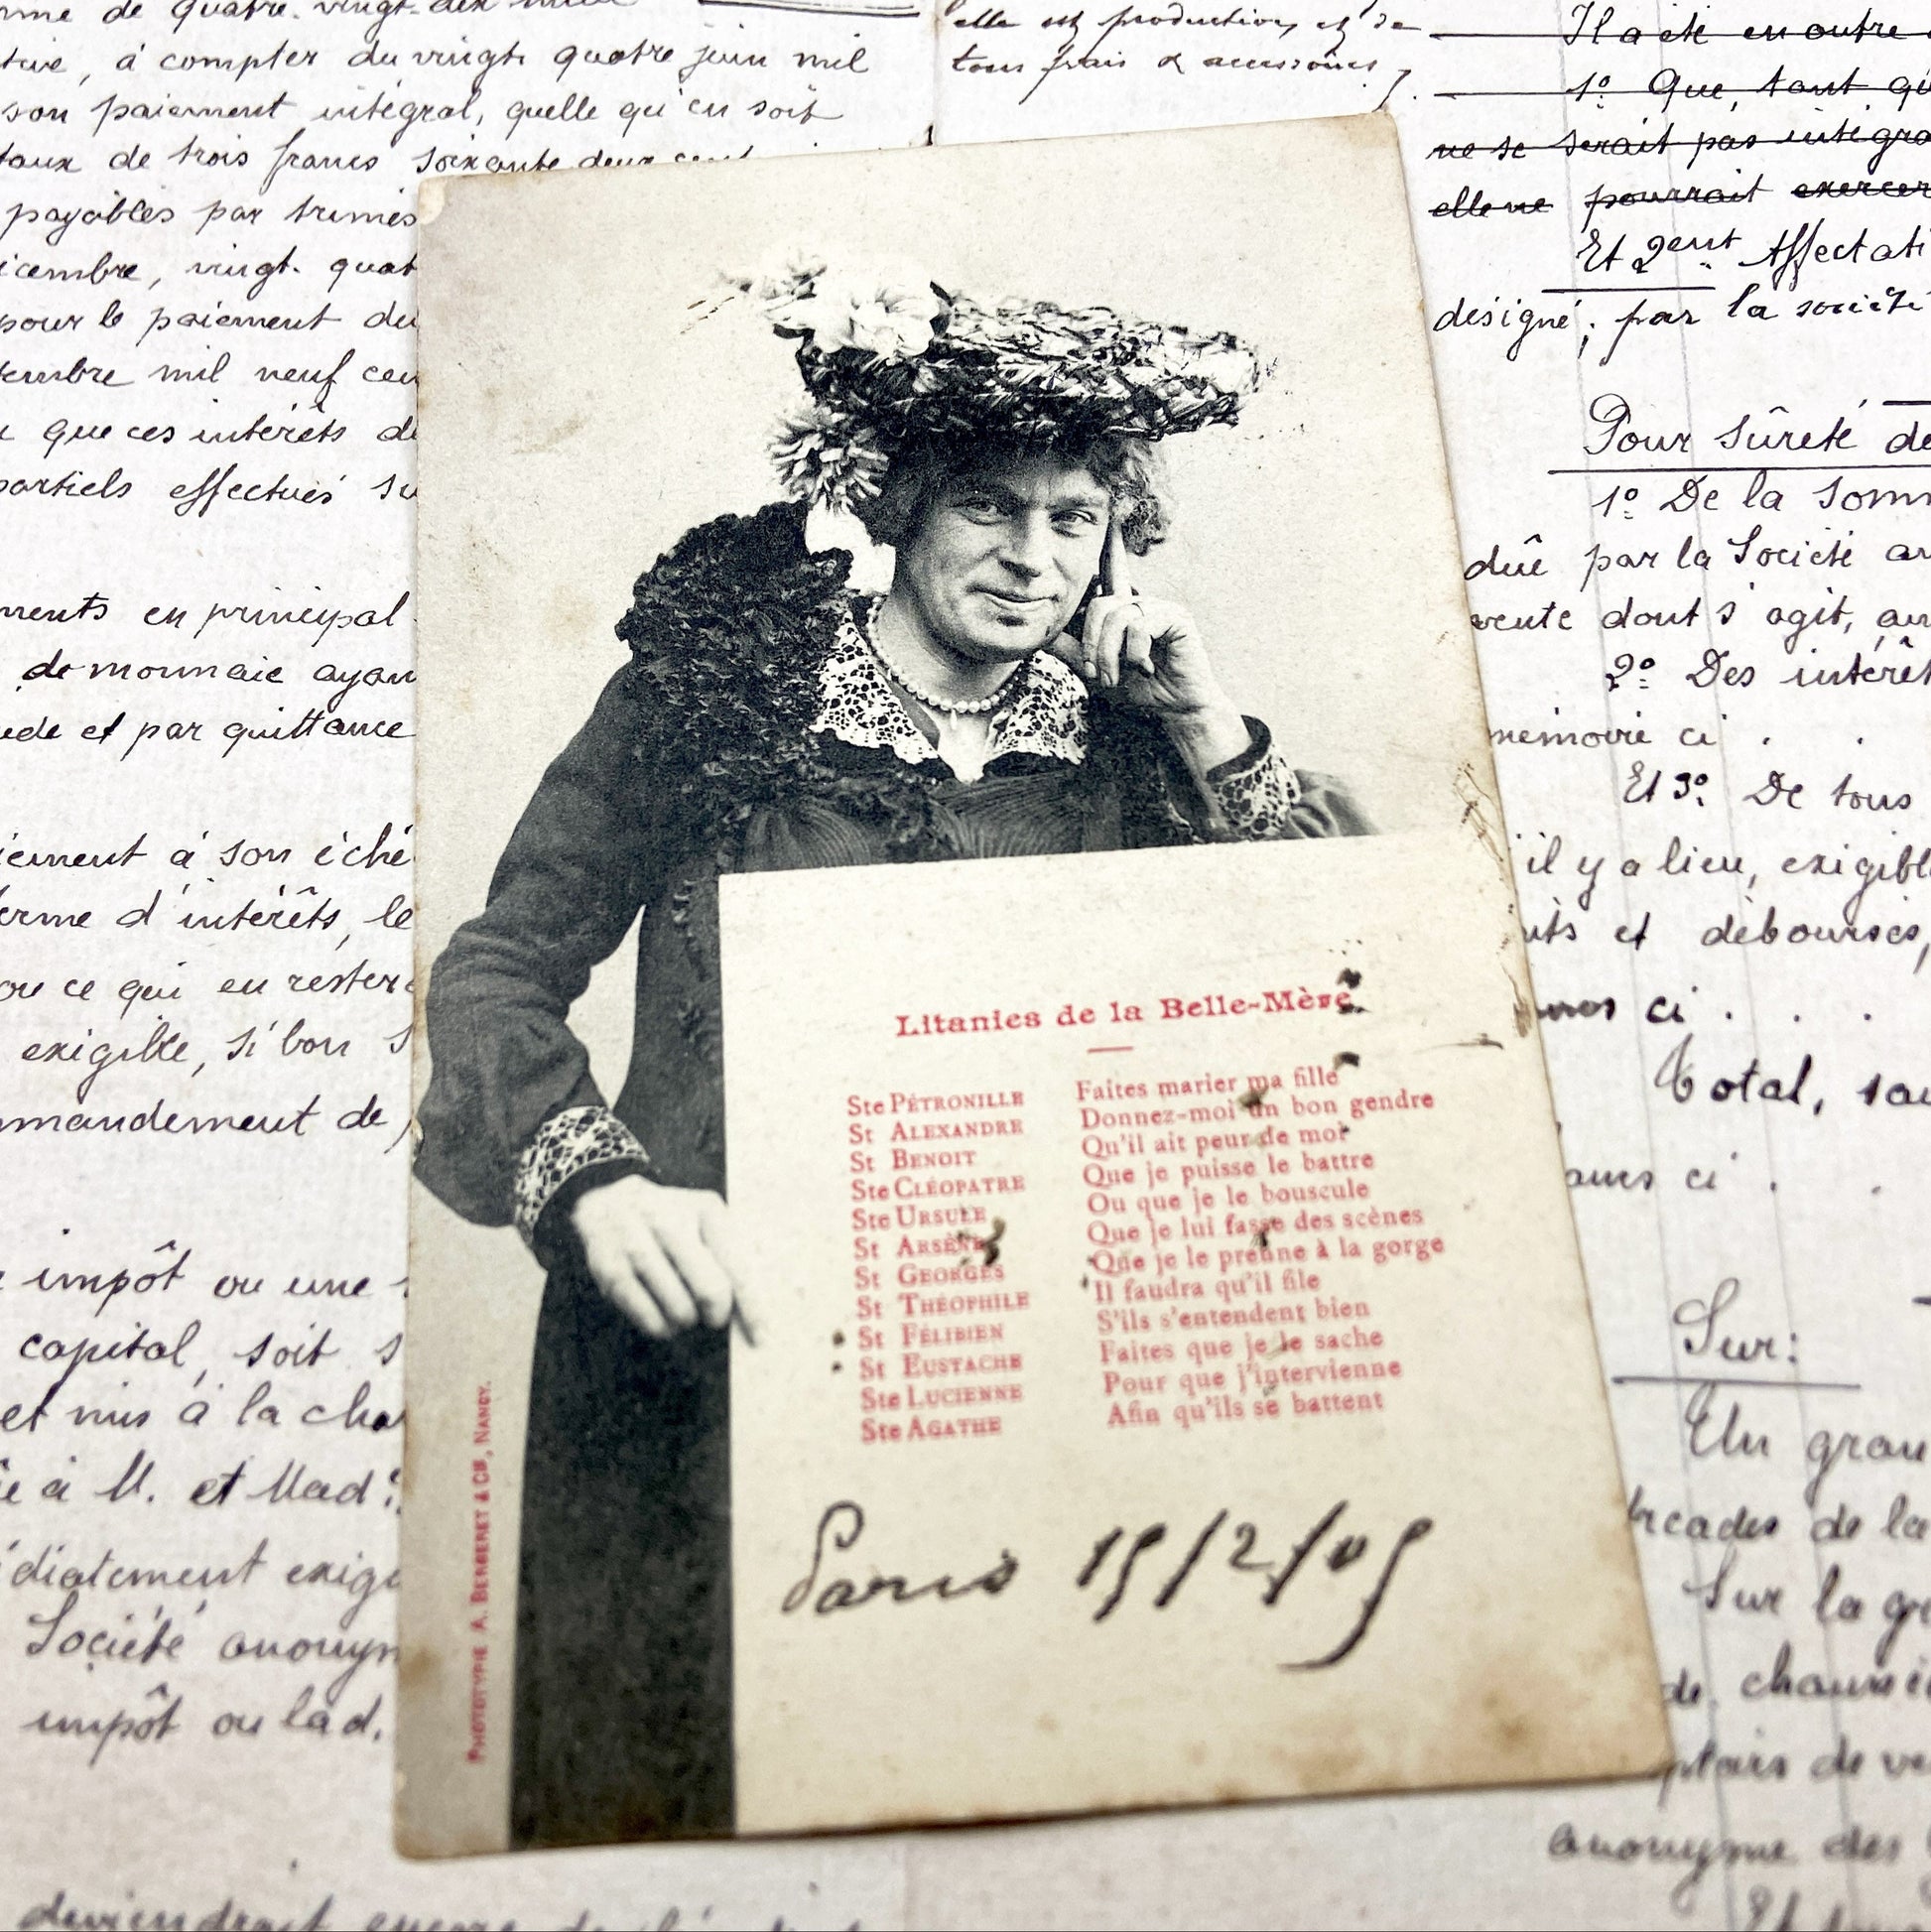 me de quatre-vingt-dix mille
à compter du vingt quatre juin mil
son paiement intégral, quelle qu'en soit
taux de trois francs soixante deux cent
payables par trimes
icembre, vingt-quat
pour le paiement du
tembre mil neuf cen
que ces intérêts d
partiels effectués su
ments en principal
de monnaie ayan
et par quittance
iement à son éché
erme d'intérêts, le
ou ce qui en rester
exigible, si bon s
mmandement de
impôt ou une
capital, soit s
et mis à la cha
à M. et Mad
édiatement exigi
Société anonym
impôt ou lad.
deviendrait encore
elle est production, et de
tous frais & accessoires
Il a été en outre
1º Que, tant qu
ne se serait pas intégra
elle ne pourrait exercer
Et 2ent Affectati
désigné, par la société
Pour sûreté de
1º De la Somm
dûe par la Société an
vente dont s'agit, au
2º Des intérêt
mémoire ci . .
Et 3º De tous
il y a lieu, exigibl
et débourses,
ci . . .
Total, sau
ci . .
Sur:
Un gran
de la
Sur la g
de
de ve
anonyme des
Litanies de la Belle-Mère
Ste PÉTRONILLE Faites marier ma fille
St ALEXANDRE Donnez-moi un bon gendre
St BENOIT Qu'il ait peur de moi
Ste CLÉOPATRE Que je puisse le battre
Ste URSULE Ou que je le bouscule
St ARSÈNE Que je lui fasse des scènes
St GEORGES Que je le prenne à la gorge
St THÉOPHILE Il faudra qu'il file
St FÉLIBIEN S'ils s'entendent bien
St EUSTACHE Faites que je le sache
Ste LUCIENNE Pour que j'intervienne
Ste AGATHE Afin qu'ils se battent
Paris 15/2/05
PHOTOTYPIE A. BERGERET & Cie, NANCY.